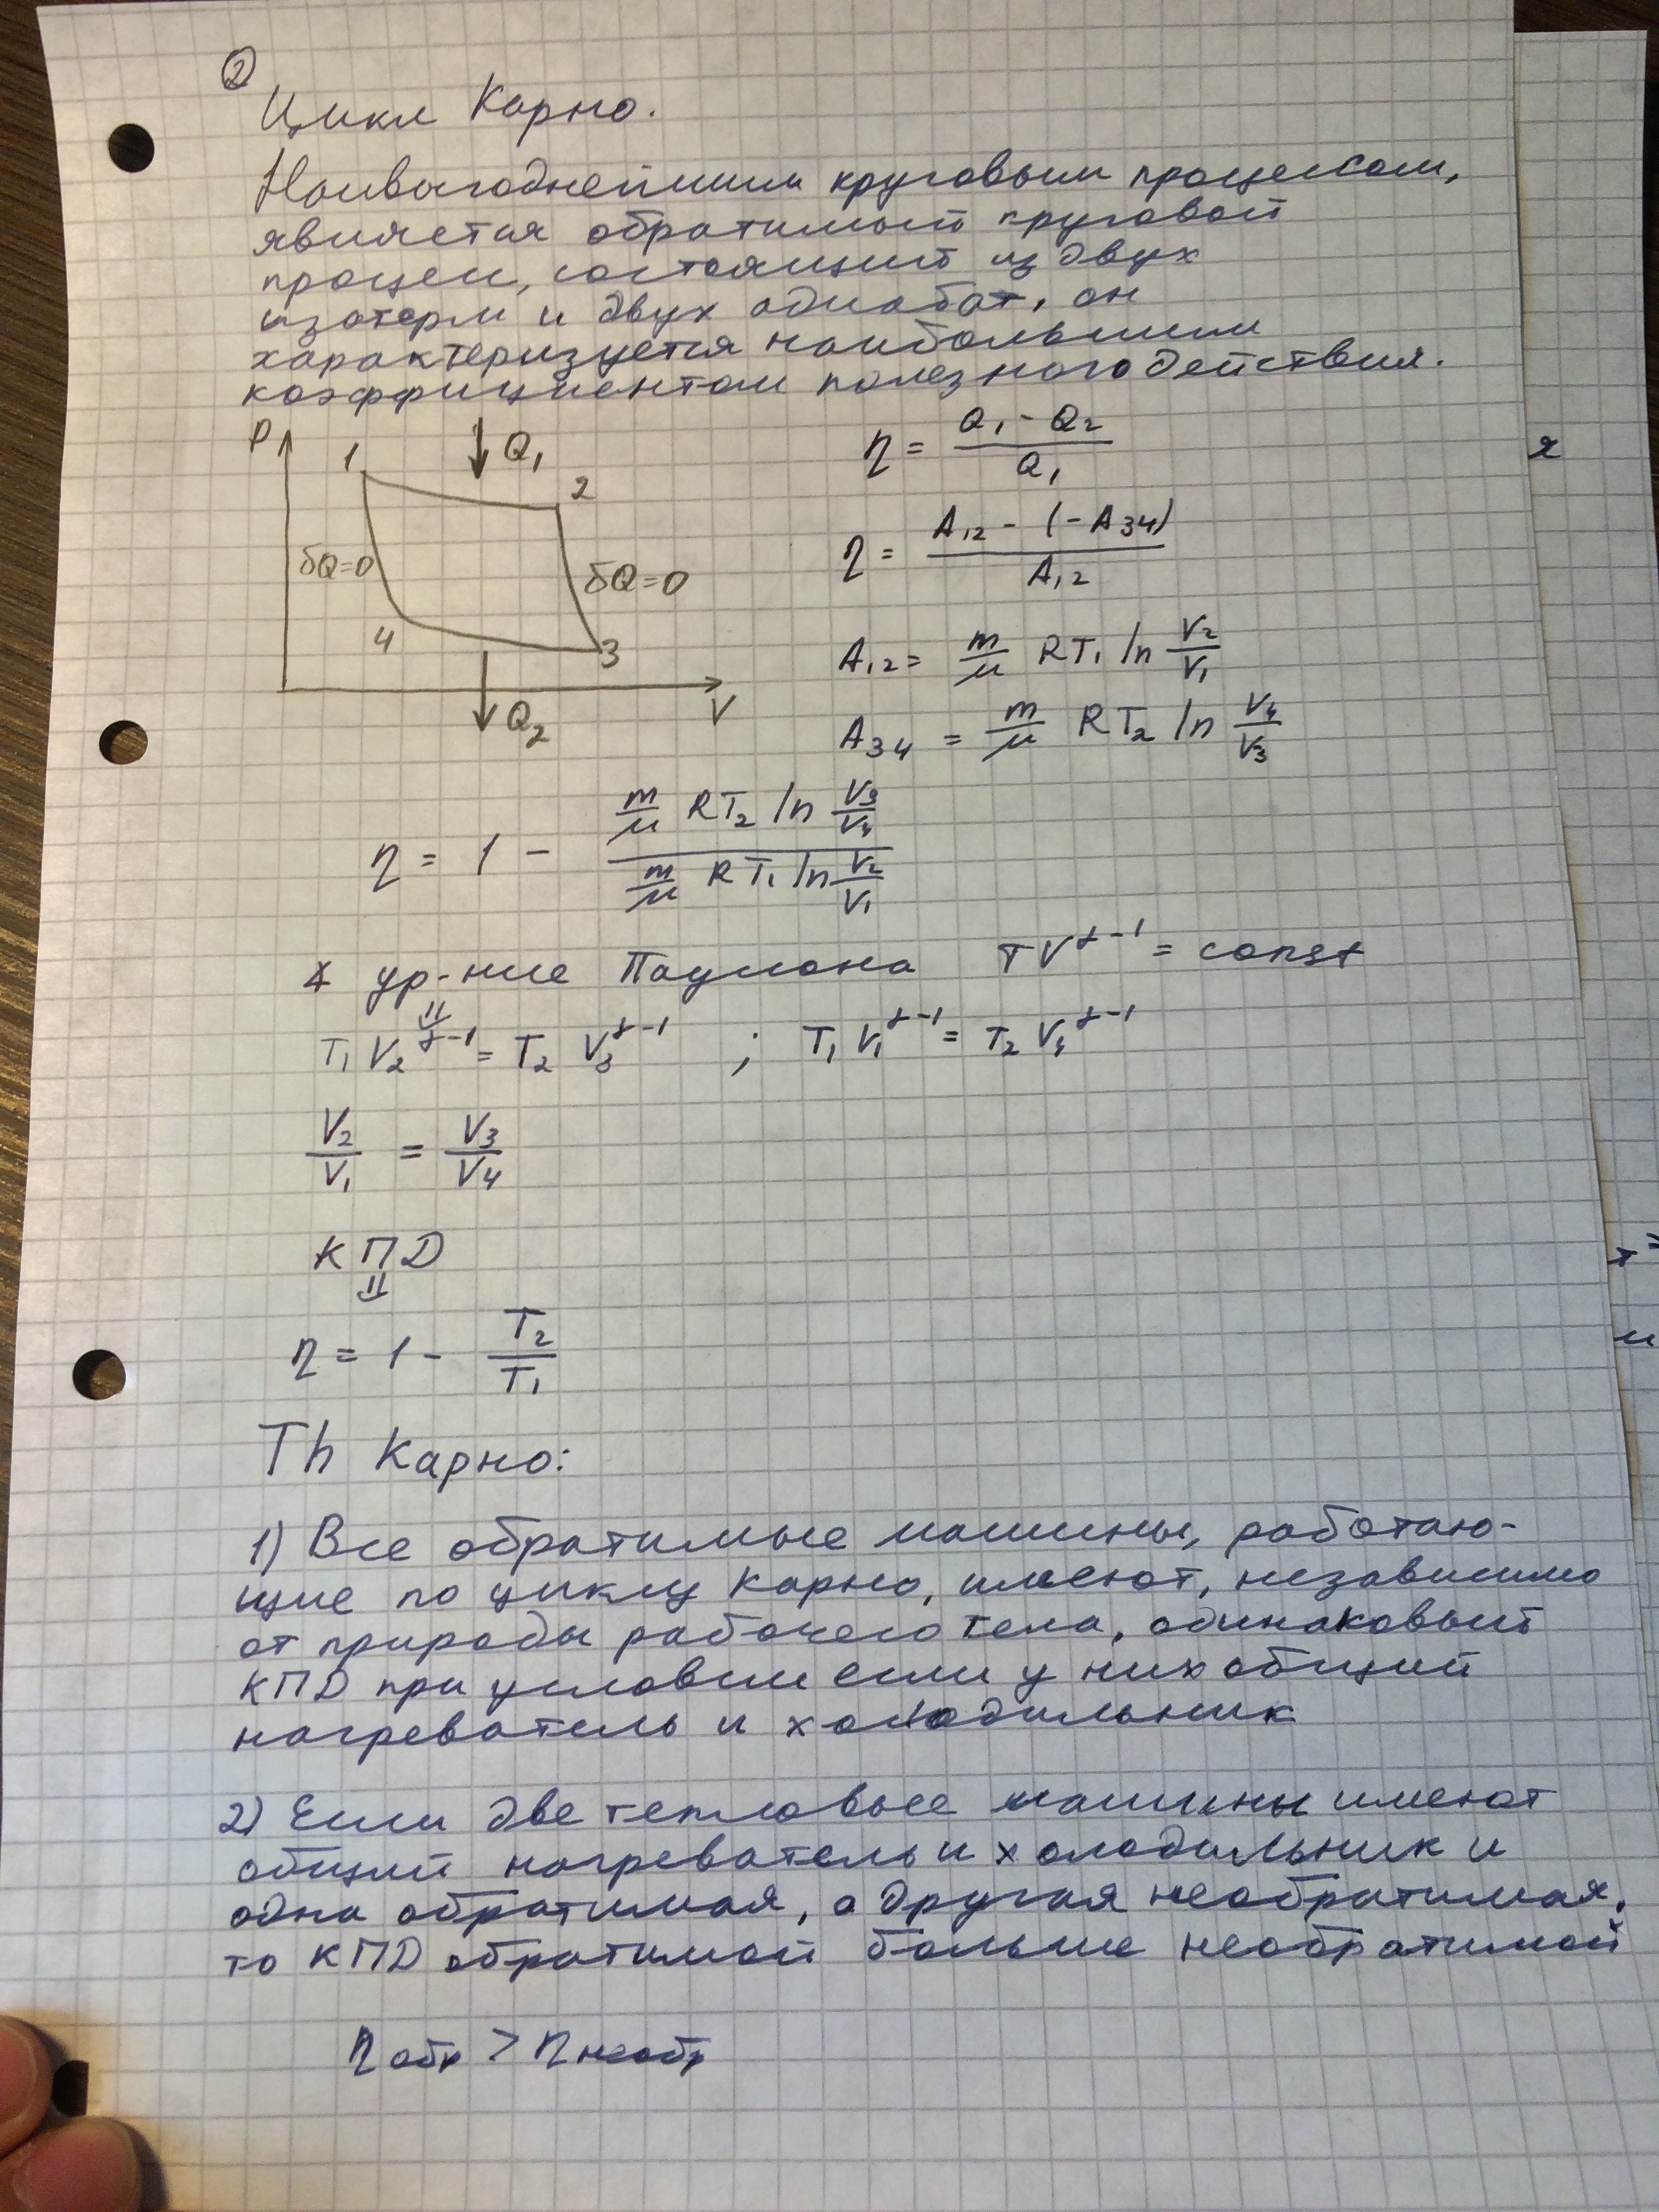 2
Цикл Карно.
Наивыгоднейшим круговым процессом,
является обратимый круговой
процесс, состоящий из двух
изотерм и двух адиабат, он
характеризуется наибольшим
коэффициентом полезного действия.
P
1
Q₁
2
δQ=0
δQ=0
4
3
V
Q₂
η = (Q₁ - Q₂)/Q₁
η = (A₁₂ - (-A₃₄))/A₁₂
A₁₂ = m/μ RT₁ ln V₂/V₁
A₃₄ = m/μ RT₂ ln V₄/V₃
η = 1 - (m/μ RT₂ ln V₃/V₄)/(m/μ RT₁ ln V₂/V₁)
ур-ние Пауссона TV^(γ-1) = const
⇓
T₁V₂^(γ-1) = T₂V₃^(γ-1) ; T₁V₁^(γ-1) = T₂V₄^(γ-1)
V₂/V₁ = V₃/V₄
КПД
⇓
η = 1 - T₂/T₁
Th Карно:
1) Все обратимые машины, работаю-
щие по циклу Карно, имеют, независимо
от природы рабочего тела, одинаковый
КПД при условии если у них общий
нагреватель и холодильник
2) Если две тепловые машины имеют
общий нагреватель и холодильник и
одна обратимая, а другая необратимая,
то КПД обратимой больше необратимой
η обр > η необр
я
и